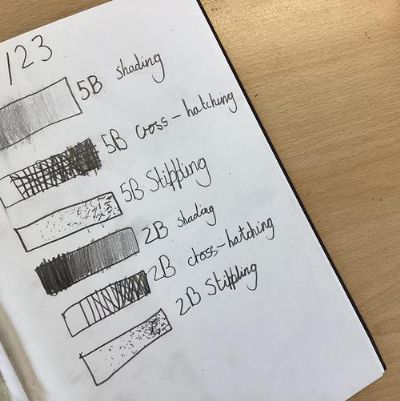 /23
5B shading
5B cross-hatching
5B Stippling
2B shading
2B cross-hatching
2B Stippling